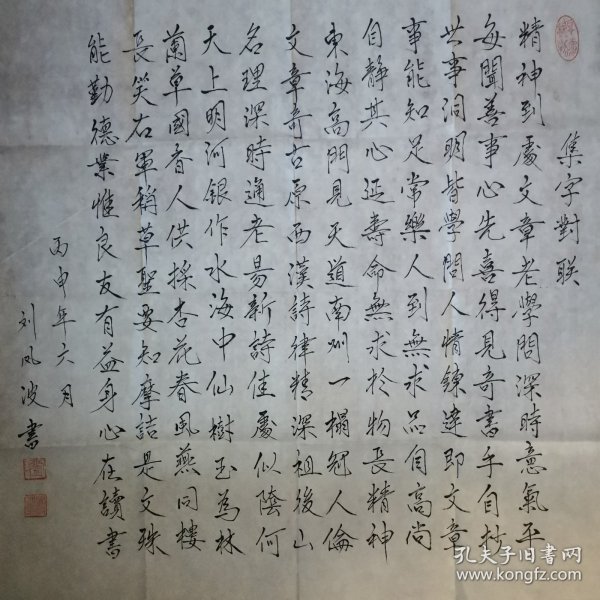 集字對联
精神到處文章老學問深時意氣平
每聞善事心先喜得見奇書手自抄
世事洞明皆學問人情鍊達即文章
事能知足常樂人到無求品自高尚
自靜其心延壽命無求於物長精神
東海高門見天道南州一榻冠人倫
文章奇古原西漢詩律精深祖後山
名理深時通老易新詩佳處似陰何
天上明河銀作水海中仙樹玉為林
蘭草國香人供採杏花春風燕同樓
長笑右軍稱草聖要知摩詰是文殊
能勤德業惟良友有益身心在讀書
丙申年六月
刘凤波書
孔夫子旧书网
www.kongfz.com